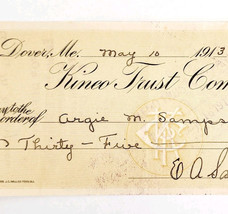 Dover, Me. May 10 1913
Kineo Trust Com
ay to the
order of Argie M. Samps
Thirty - Five
E A Sa